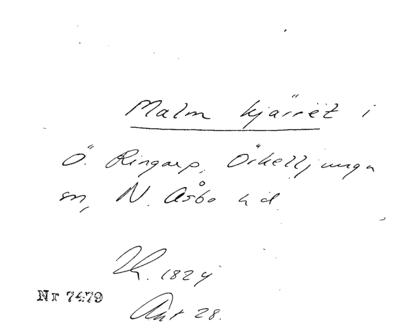 Malm kjärret i
Ö. Ringarp, Örkelljunga
sn, N. Åsbo hd
1824
Nr 7479
28.